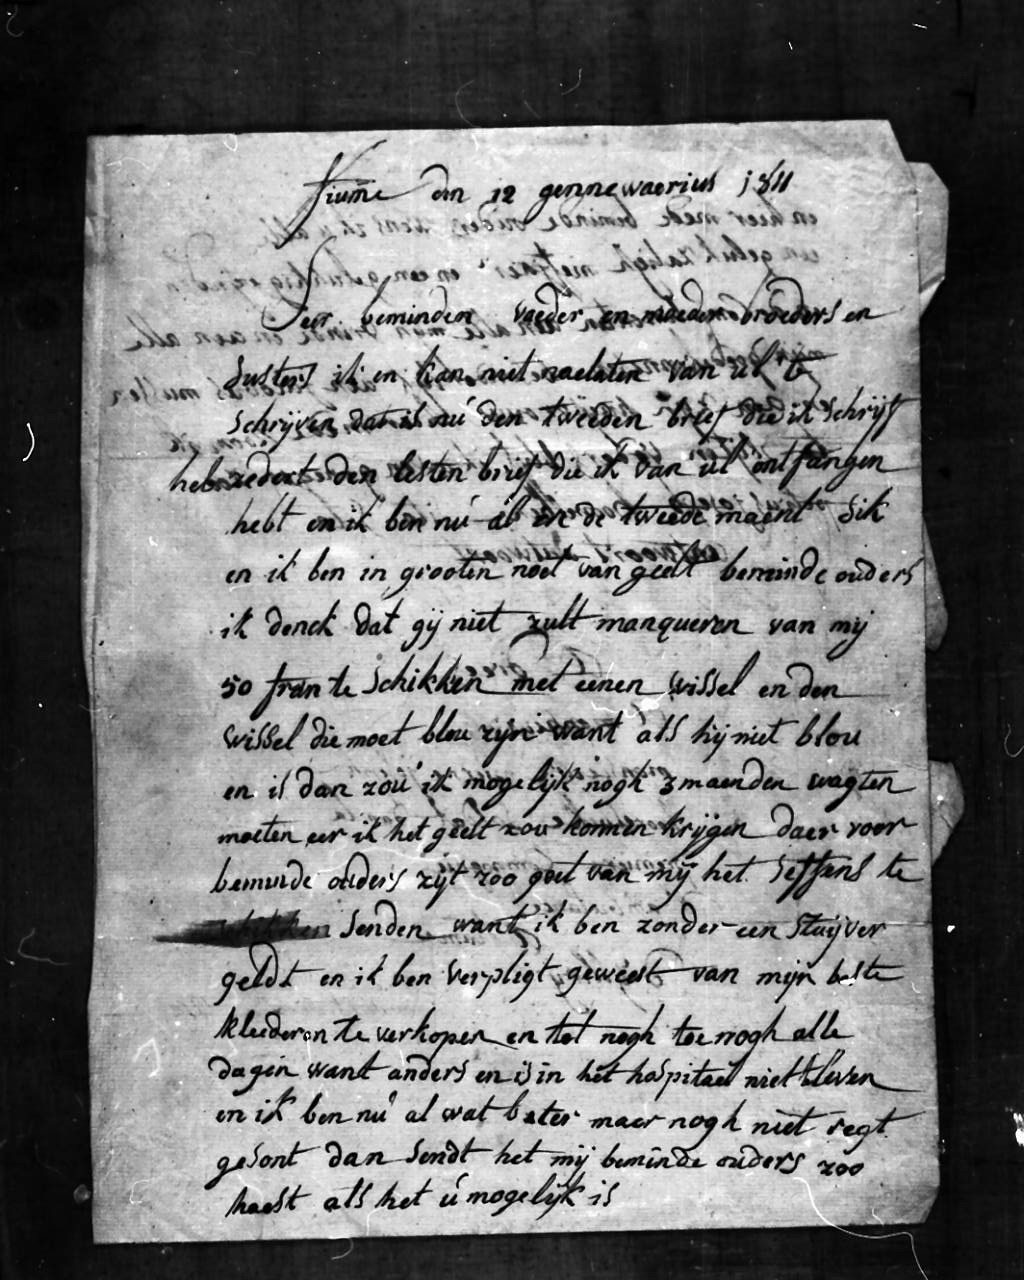 fiume den 12 gennewaerius 1811
Seer beminden vaeder en moeder broeders en
susters ik en kan niet naelaten van ul te
schrijven dat is nú den tweeden brief die ik schrijf
heb zedert den lesten brief die ik van ul ontfangen
hebt en ik ben nú al in de tweede maent sik
en ik ben in grooten noet van geelt beminde ouders
ik denck dat gij niet zult manqueren van mij
50 fran te schikken met eenen wissel en den
wissel die moet blou zijn want als hij niet blou
en is dan zoú ik mogelijk nogh 3 maenden wagten
moeten eer ik het geelt zou konnen krijgen daer voor
beminde ouders zijt zoo goet van mij het seffens te
senden want ik ben zonder een stuijver
geldt en ik ben verpligt geweest van mijn beste
kleederen te verkopen en tot nogh toe nogh alle
dagen want anders en is in het hospitael niet bleven
en ik ben nú al wat beter maer nogh niet regt
gesont dan sendt het mij beminde ouders zoo
haest als het ú mogelijk is